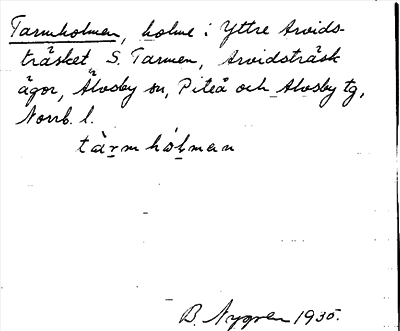 Tarmholmen, holme i Yttre Arvids-
träsket, S. Tarmen, Arvidsträsk
ägor, Älvsby sn, Piteå och Älvsby tg,
Norrb. l.
tàrmhólman
B. Nygren 1935.